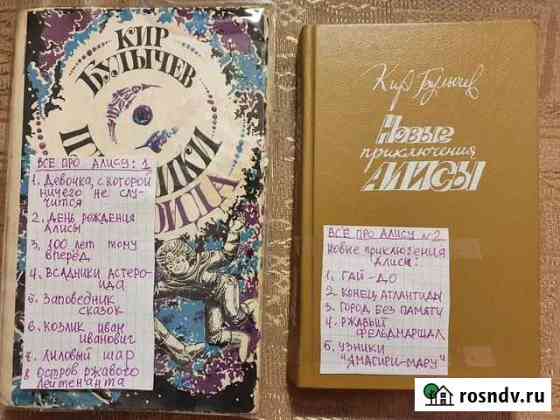 КИР
БУЛЫЧЕВ
ВСЕ ПРО АЛИСУ: 1
1. Девочка, с которой
ничего не слу-
чится
2. День рождения
Алисы
3. 100 лет тому
вперёд
4. Всадники астеро-
ида
5. Заповедник
сказок
6. Козлик Иван
Иванович
7. Лиловый шар
8 Остров ржавого
лейтенанта
Кир Булычев
Новые
приключения
АЛИСЫ
ВСЁ ПРО АЛИСУ №2
Новые приключения
Алисы:
1. ГАЙ-ДО
2. КОНЕЦ АТЛАНТИДЫ
3. ГОРОД БЕЗ ПАМЯТИ
4. РЖАВЫЙ
ФЕЛЬДМАРШАЛ
5. УЗНИКИ
"ЯМАГИРИ-МАРУ"
rosndv.ru